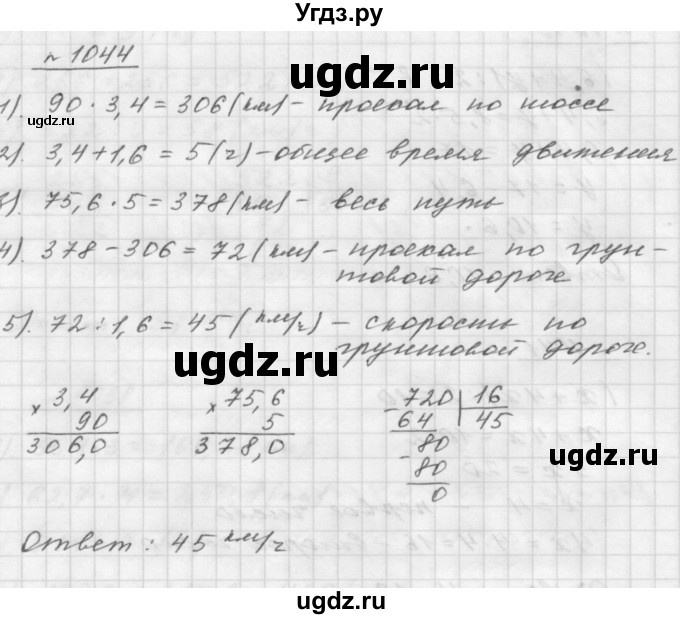 Угдз.ру
№ 1044
ugdz.ru
1). 90 · 3,4 = 306 (км) - проехал по шоссе
ugdz.ru
2). 3,4 + 1,6 = 5 (ч) - общее время движения
3). 75,6 · 5 = 378 (км) - весь путь
4). 378 - 306 = 72 (км) - проехал по грун-
товой дороге
5). 72 : 1,6 = 45 (км/ч) - скорость по
грунтовой дороге.
ugdz.ru
× 3,4
90
306,0
× 75,6
5
378,0
- 720 | 16
64 45
80
- 80
0
Ответ : 45 км/ч
ugdz.ru
ugdz.ru